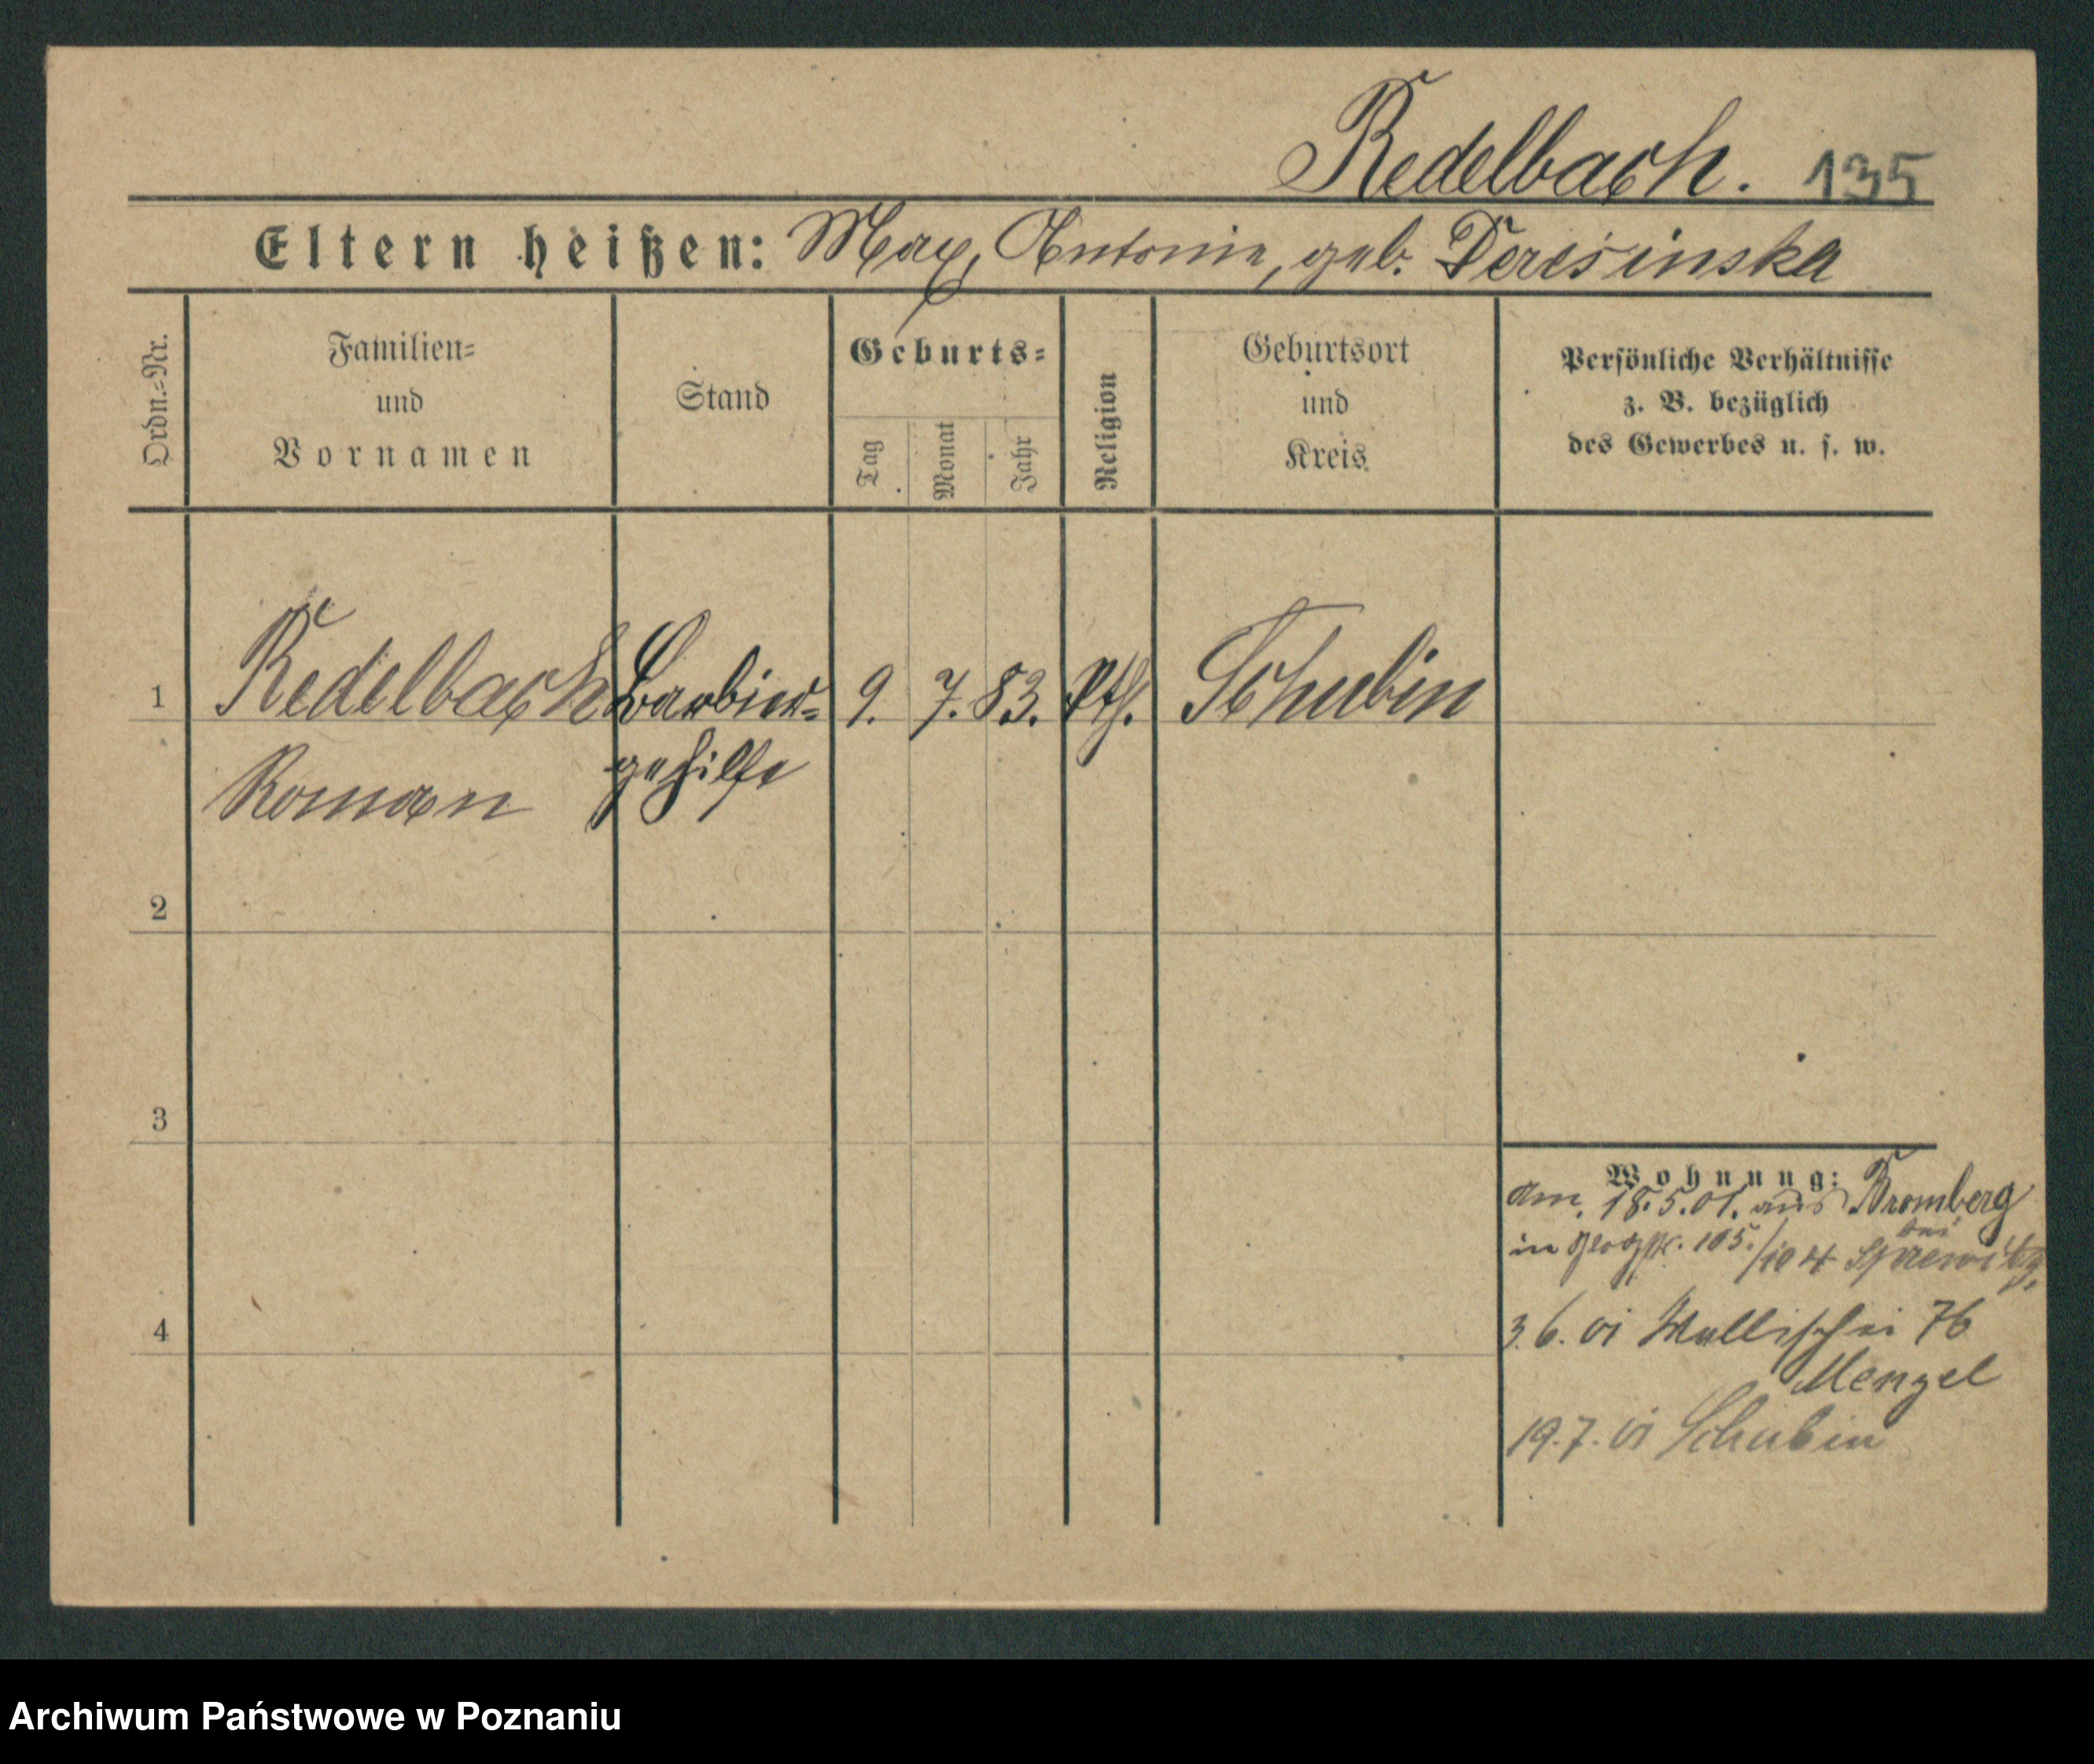 Redelbach. 135
Eltern heißen: Max, Antonie, geb. Deresinska
Ordn.=Nr.
Familien=
und
Vornamen
Stand
Geburts=
Tag
Monat
Jahr
Religion
Geburtsort
und
Kreis
Persönliche Verhältnisse
z. B. bezüglich
des Gewerbes u. s. w.
1 Redelbach Barbier= 9. 7. 83. kth. Schubin
Roman gehilfe
2
3
Wohnung:
am 18.5.01. aus Bromberg
in 105./104 bei
4
3.6.01 Wallischei 76
Menzel
19.7.01 Schubin
Archiwum Państwowe w Poznaniu